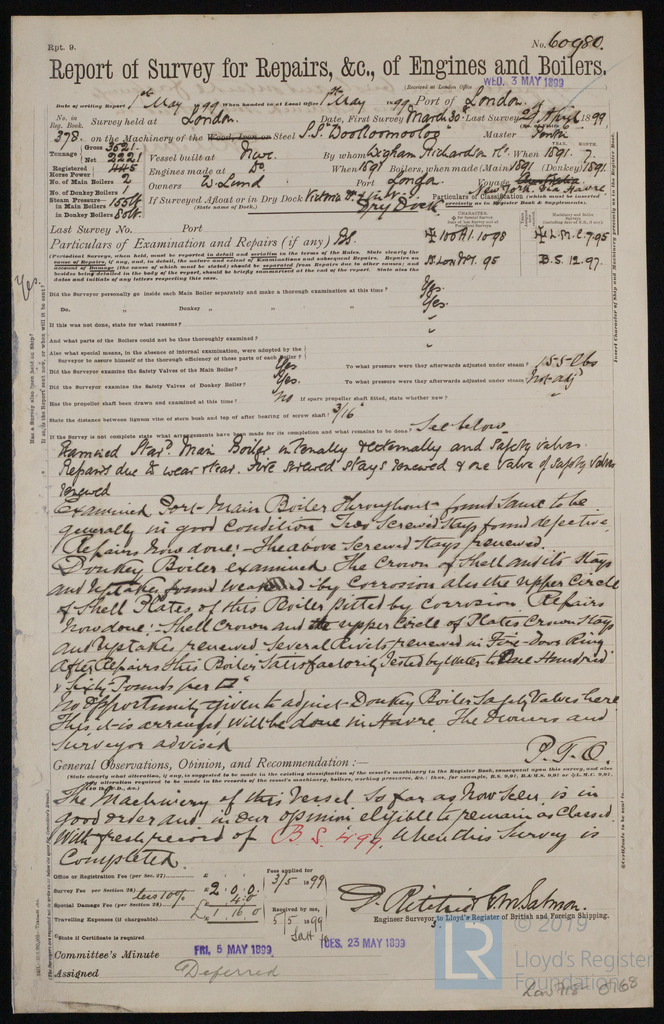 Rpt. 9.
No. 60980.
Report of Survey for Repairs, &c., of Engines and Boilers.
(Received at London Office WED. 3 MAY 1899
Date of writing Report 1st May 99 When handed in at Local Office 1st May 1899 Port of London
No. in Reg. Book. Survey held at London. Date, First Survey March 30 Last Survey 29 April 1899
378. on the Machinery of the Wood, Iron or Steel S.S. "Woolloomooloo" Master
Tonnage Gross 3521 Net 2221
Vessel built at Nwc. By whom Wigham Richardson & Co. When 1891 7
Registered Horse Power
Engines made at Do When 1891 Boilers, when made (Main) 1891 (Donkey) 1891
No. of Main Boilers 2
Owners W. Lund Port London Voyage New York via Havre
No. of Donkey Boilers 1
Steam Pressure in Main Boilers 155 lb
in Donkey Boilers 80 lb
If Surveyed Afloat or in Dry Dock Victoria Dk & Dry Dock
(State name of Dock.)
Particulars of Classification (which must be inserted precisely as in Register Book & Supplements).
Last Survey No. Port
Particulars of Examination and Repairs (if any) BS
100A1. 10.98
L.M.C. 7.95
B.S. 12.97
(Periodical Surveys, when held, must be reported in detail and seriatim in the terms of the Rules. State clearly the
dates and initials of any letters respecting this case.
Did the Surveyor personally go inside each Main Boiler separately and make a thorough examination at this time? Yes.
Do. " Donkey " " " Yes.
If this was not done, state for what reasons? "
And what parts of the Boilers could not be thus thoroughly examined? "
Also what special means, in the absence of internal examination, were adopted by the Surveyor to assure himself of the thorough efficiency of those parts of each Boiler? "
Did the Surveyor examine the Safety Valves of the Main Boiler? Yes To what pressure were they afterwards adjusted under steam? 155 lbs
Did the Surveyor examine the Safety Valves of Donkey Boiler? Yes. To what pressure were they afterwards adjusted under steam? Not adj
Has the propeller shaft been drawn and examined at this time? No If spare propeller shaft fitted, state whether new?
State the distance between lignum vitæ of stern bush and top of after bearing of screw shaft? 3/16"
If the Survey is not complete state what arrangements have been made for its completion and what remains to be done? See below
Examined Starb. Main Boiler internally & externally and safety valves.
Repairs due to wear & tear. Five screwed stays renewed & one valve of safety valves
renewed
Examined Port Main Boiler throughout found same to be
generally in good condition Two screwed stays found defective.
Repairs now done:- The above screwed stays renewed.
Donkey Boiler examined The Crown of Shell and its Stays
and Uptake found weakened by Corrosion also the upper Circle
of Shell Plates of this Boiler pitted by Corrosion. Repairs
now done:- Shell Crown and the upper Circle of Plates Crown Stays
and Uptakes renewed Several Rivets renewed in Fire-Door Ring
After Repairs this Boiler Satisfactorily Tested by Water to One Hundred
& Sixty Pounds per □"
No opportunity given to adjust Donkey Boiler Safety Valves here
This, it is arranged, will be done in Havre. The Owners and
Surveyor advised
P.T.O.
General Observations, Opinion, and Recommendation:—
(State clearly what alteration, if any, is suggested to be made in the existing classification of the vessel's machinery in the Register Book, consequent upon this survey, and also
The Machinery of this Vessel so far as now seen, is in
good order and in our opinion eligible to remain as Classed
With fresh record of B.S. 4.99. When this survey is
Completed.
Office or Registration Fee (per Sec. 27)
Survey Fee (per Section 28) £ 2. 0. 0
less 10%
Special Damage Fee (per Section 28) 4. 0
Travelling Expenses (if chargeable) £ 1. 16. 0
Fees applied for 3/5 1899
Received by me, 5/5 1899
State if Certificate is required
Engineer Surveyors to Lloyd's Register of British and Foreign Shipping.
Committee's Minute FRI. 5 MAY 1899 TUES. 23 MAY 1899
Assigned Deferred
© 2019
LR
Lloyd's Register
Foundation
0168